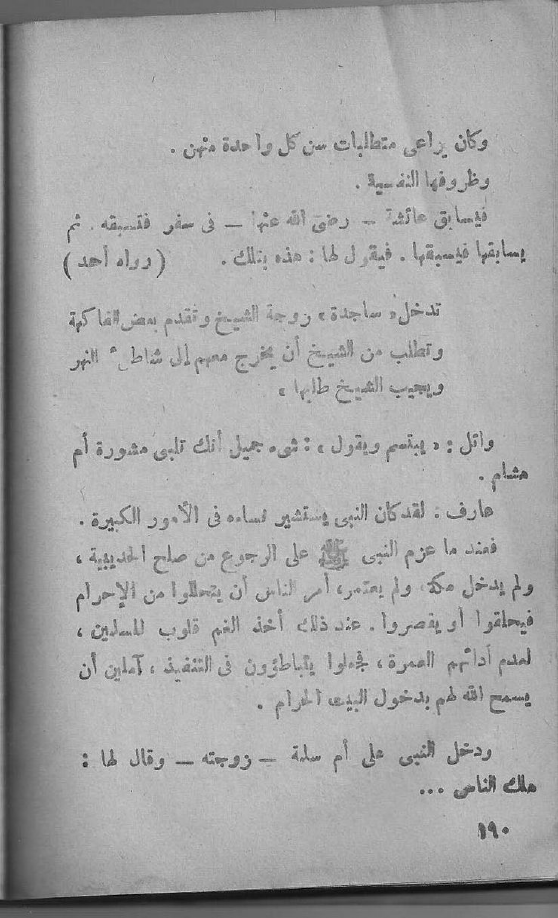 وكان يراعى متطلبات سن كل واحدة منهن .
وظروفها النفسية .
فيسابق عائشة - رضى الله عنها - فى سفر فتسبقه . ثم
يسابقها فيسبقها . فيقول لها : هذه بتلك . ( رواه أحمد )
تدخل « ساجدة » زوجة الشيخ وتقدم بعض الفاكهة
وتطلب من الشيخ أن يخرج معهم إلى شاطىء النهر
ويجيب الشيخ طلبها »
وائل : « يبتسم ويقول » : شىء جميل أنك تلبى مشورة أم
هشام .
عارف : لقد كان النبى يستشير نساءه فى الأمور الكبيرة .
فعند ما عزم النبى ﷺ على الرجوع من صلح الحديبية ،
ولم يدخل مكة ولم يعتمر ، أمر الناس أن يتحللوا من الإحرام
فيحلقوا أو يقصروا . عند ذلك أخذ الغم قلوب المسلمين ،
لعدم أدائهم العمرة ، فجعلوا يتباطؤون فى التنفيذ ، آملين أن
يسمح الله لهم بدخول البيت الحرام .
ودخل النبى على أم سلمة - زوجته - وقال لها :
هلك الناس ...
١٩٠